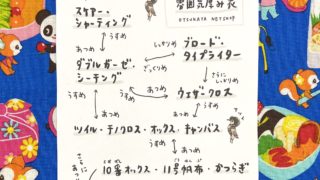 雰囲気厚み表
OTSUKAYA NETSHOP
スケアー・
シャーティング
うすめ
あつめ
しっかりめ
ブロード・
タイプライター
ざっくりめ
ダブルガーゼ・
シーチング
さらに
しっかりめ
うすめ
あつめ
うすめ
あつめ
ウェザークロス
ツイル・チノクロス・オックス・キャンバス
さらに
あつめ
うすめ
あつめ
10番オックス・11号帆布・かつらぎ